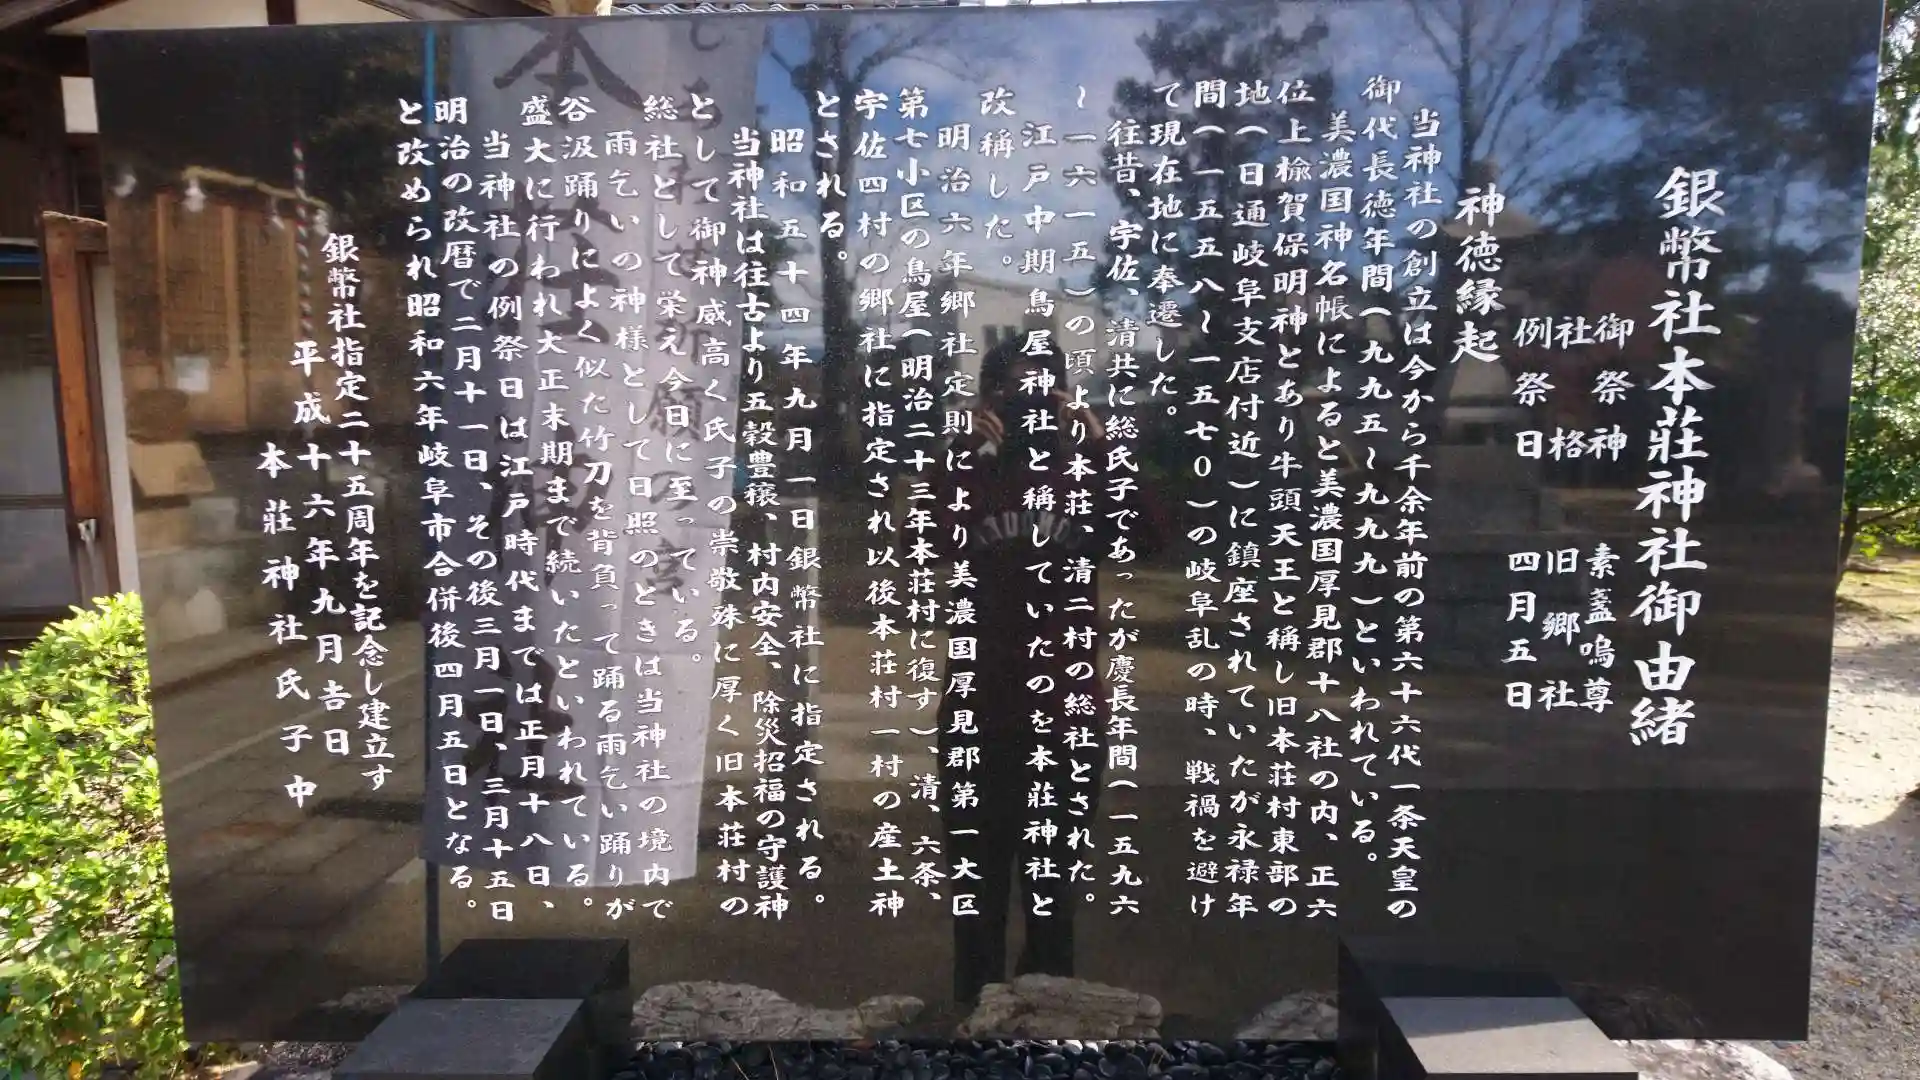 銀幣社本莊神社御由緒
御祭神　素盞嗚尊
社格　旧郷社
例祭日　四月五日
神徳縁起
当神社の創立は今から千余年前の第六十六代一条天皇の
御代長徳年間(九九五～九九九)といわれている。
美濃国神名帳によると美濃国厚見郡十八社の内、正六
位上楡賀保明神とあり牛頭天王と称し旧本荘村東部の
地(日通岐阜支店付近)に鎮座されていたが永禄年
間(一五五八～一五七〇)の岐阜乱の時、戦禍を避け
て現在地に奉遷した。
往昔、宇佐、清共に総氏子であったが慶長年間(一五九六
～一六一五)の頃より本荘、清二村の総社とされた。
江戸中期鳥屋神社と称していたのを本莊神社と
改稱した。
明治六年郷社定則により美濃国厚見郡第一大区
第七小区の鳥屋(明治二十三年本荘村に復す)、清、六条、
宇佐四村の郷社に指定され以後本荘村一村の産土神
とされる。
昭和五十四年九月一日銀幣社に指定される。
当神社は往古より五穀豊穣、村内安全、除災招福の守護神
として御神威高く氏子の崇敬殊に厚く旧本荘村の
総社として栄え今日に至っている。
雨乞いの神様として日照のときは当神社の境内で
谷汲踊りによく似た竹刀を背負って踊る雨乞い踊りが
盛大に行われ大正末期まで続いたといわれている。
当神社の例祭日は江戸時代までは正月十八日、
明治の改暦で二月十一日、その後三月一日、三月十五日
と改められ昭和六年岐阜市合併後四月五日となる。
銀幣社指定二十五周年を記念し建立す
平成十六年九月吉日
本莊神社氏子中